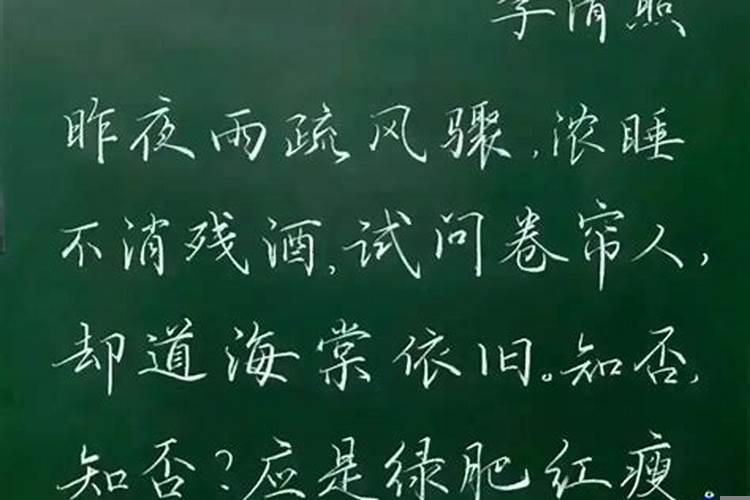 李清照
昨夜雨疏风骤,浓睡
不消残酒,试问卷帘人,
却道海棠依旧。知否,
知否?应是绿肥红瘦